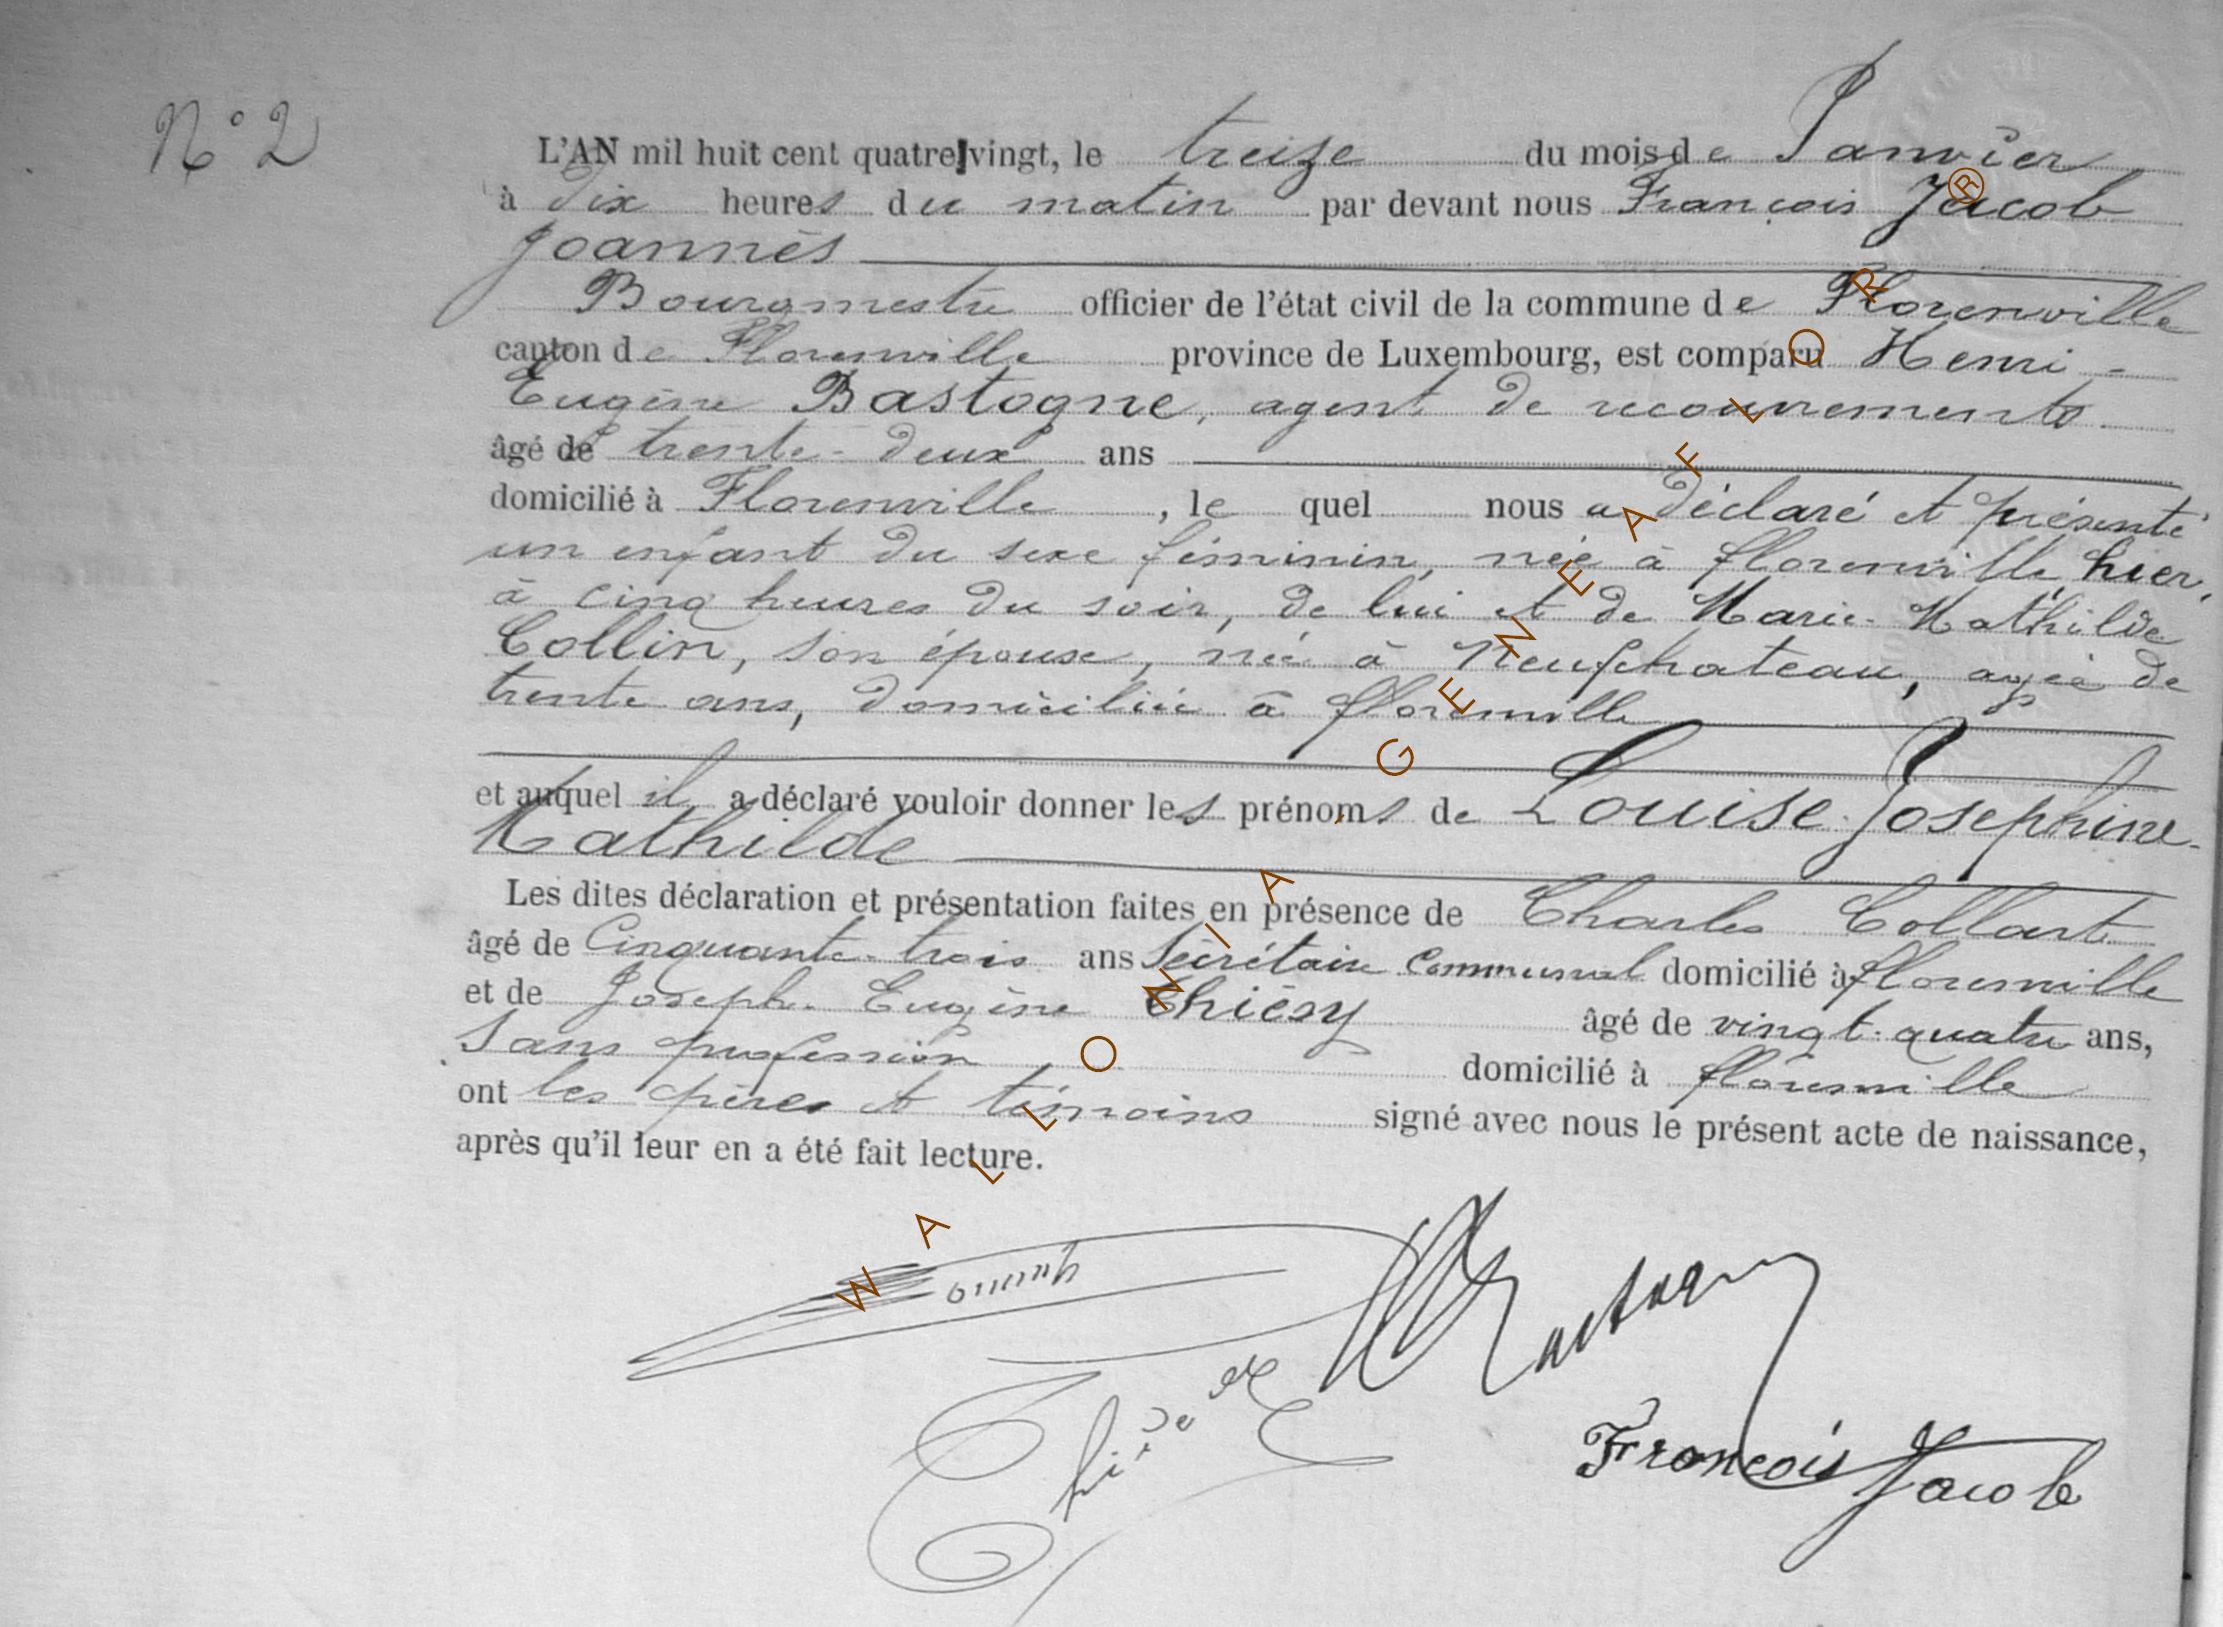 N° 2
L'AN mil huit cent quatre-vingt, le treize du mois de Janvier
à dix heures du matin par devant nous François Jacob
Joannès
Bourgmestre officier de l'état civil de la commune de Florenville
canton de Florenville province de Luxembourg, est comparu Henri-
Eugène Bastogne, agent de recouvrements
âgé de trente-deux ans
domicilié à Florenville, le quel nous a déclaré et présenté
un enfant du sexe féminin, née à florenville, hier,
à cinq heures du soir, de lui et de Marie-Mathilde
Collin, son épouse, née à Neufchateau, agée de
trente ans, domiciliée à florenville
et auquel il a déclaré vouloir donner les prénoms de Louise-Josephine-
Mathilde
Les dites déclaration et présentation faites en présence de Charles Collart
âgé de Cinquante-trois ans Secrétaire Communal domicilié à florenville
et de Joseph-Eugène Thiéry âgé de vingt-quatre ans,
Sans profession domicilié à florenville
ont les pères et témoins signé avec nous le présent acte de naissance,
après qu'il leur en a été fait lecture.
François Jacob
WALLONIA GENEAFLOR®